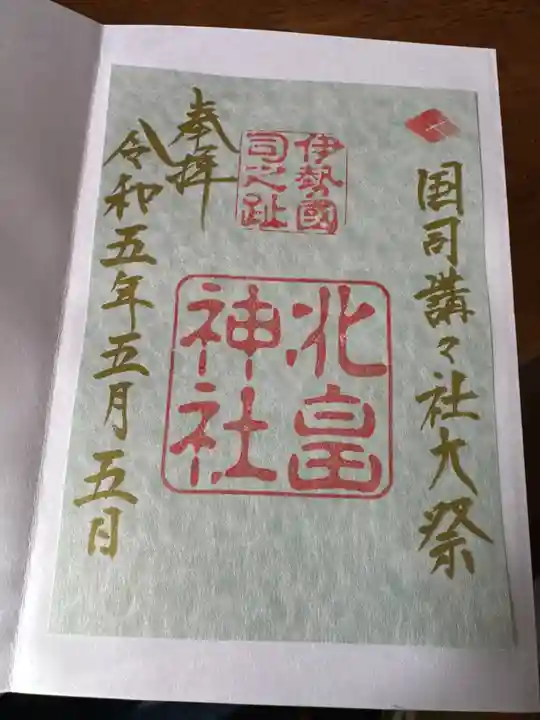 国司講々社大祭
伊勢國
司之趾
北畠
神社
奉拝
令和五年五月五日